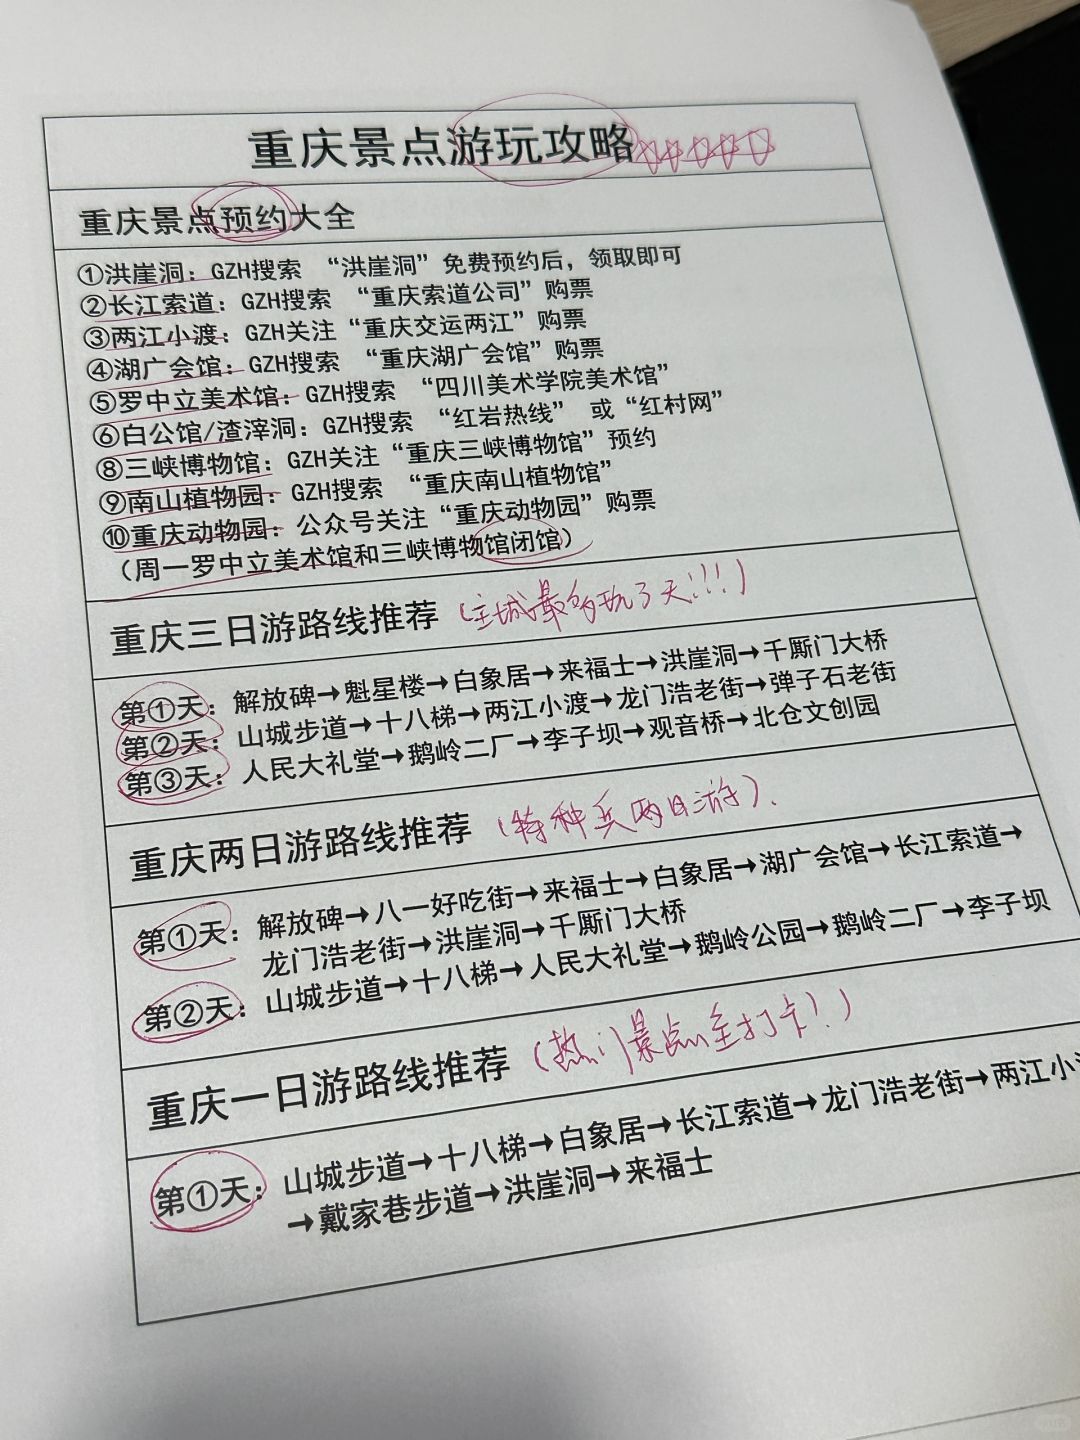 重庆景点游玩攻略
重庆景点预约大全
①洪崖洞：GZH搜索 “洪崖洞”免费预约后，领取即可
②长江索道：GZH搜索 “重庆索道公司”购票
③两江小渡：GZH关注“重庆交运两江”购票
④湖广会馆：GZH搜索 “重庆湖广会馆”购票
⑤罗中立美术馆：GZH搜索 “四川美术学院美术馆”
⑥白公馆/渣滓洞：GZH搜索 “红岩热线” 或“红村网”
⑧三峡博物馆：GZH关注“重庆三峡博物馆”预约
⑨南山植物园：GZH搜索 “重庆南山植物馆”
⑩重庆动物园：公众号关注“重庆动物园”购票
（周一罗中立美术馆和三峡博物馆闭馆）
重庆三日游路线推荐（主城最多玩3天!!!）
第①天：解放碑→魁星楼→白象居→来福士→洪崖洞→千厮门大桥
第②天：山城步道→十八梯→两江小渡→龙门浩老街→弹子石老街
第③天：人民大礼堂→鹅岭二厂→李子坝→观音桥→北仓文创园
重庆两日游路线推荐（特种兵两日游）.
第①天：解放碑→八一好吃街→来福士→白象居→湖广会馆→长江索道→
龙门浩老街→洪崖洞→千厮门大桥
第②天：山城步道→十八梯→人民大礼堂→鹅岭公园→鹅岭二厂→李子坝
重庆一日游路线推荐（热门景点全打卡!）
第①天：山城步道→十八梯→白象居→长江索道→龙门浩老街→两江小
→戴家巷步道→洪崖洞→来福士